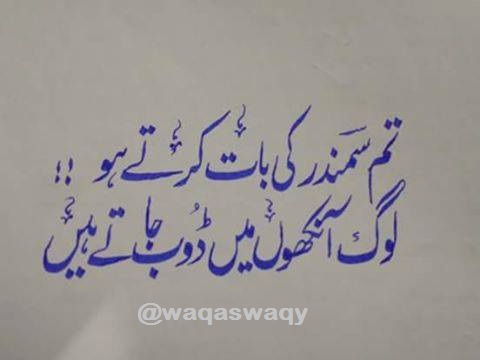 تم سمندر کی بات کرتے ہو !!
لوگ آنکھوں میں ڈوب جاتے ہیں
@waqaswaqy